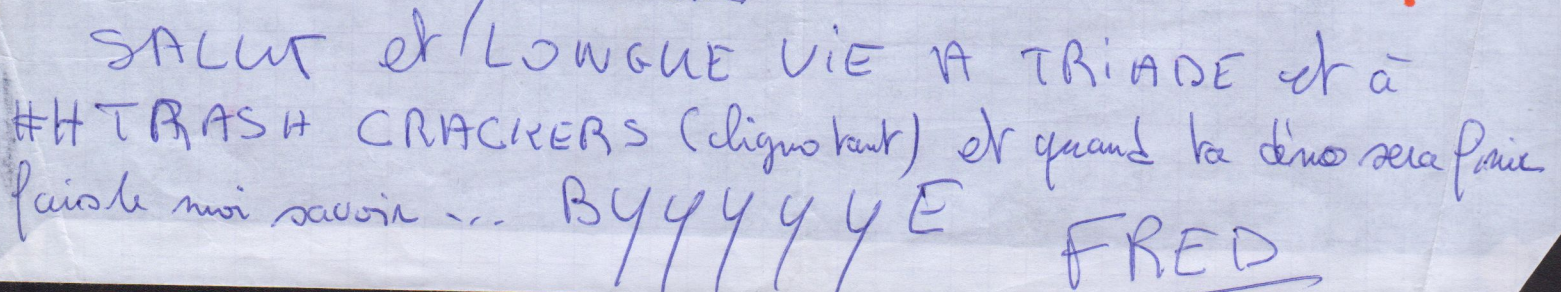 SALUT et LONGUE ViE A TRiADE et à
#H TRASH CRACKERS (clignotant) et quand ta démo sera finie
fais le moi savoir ... BYYYYYE
FRED